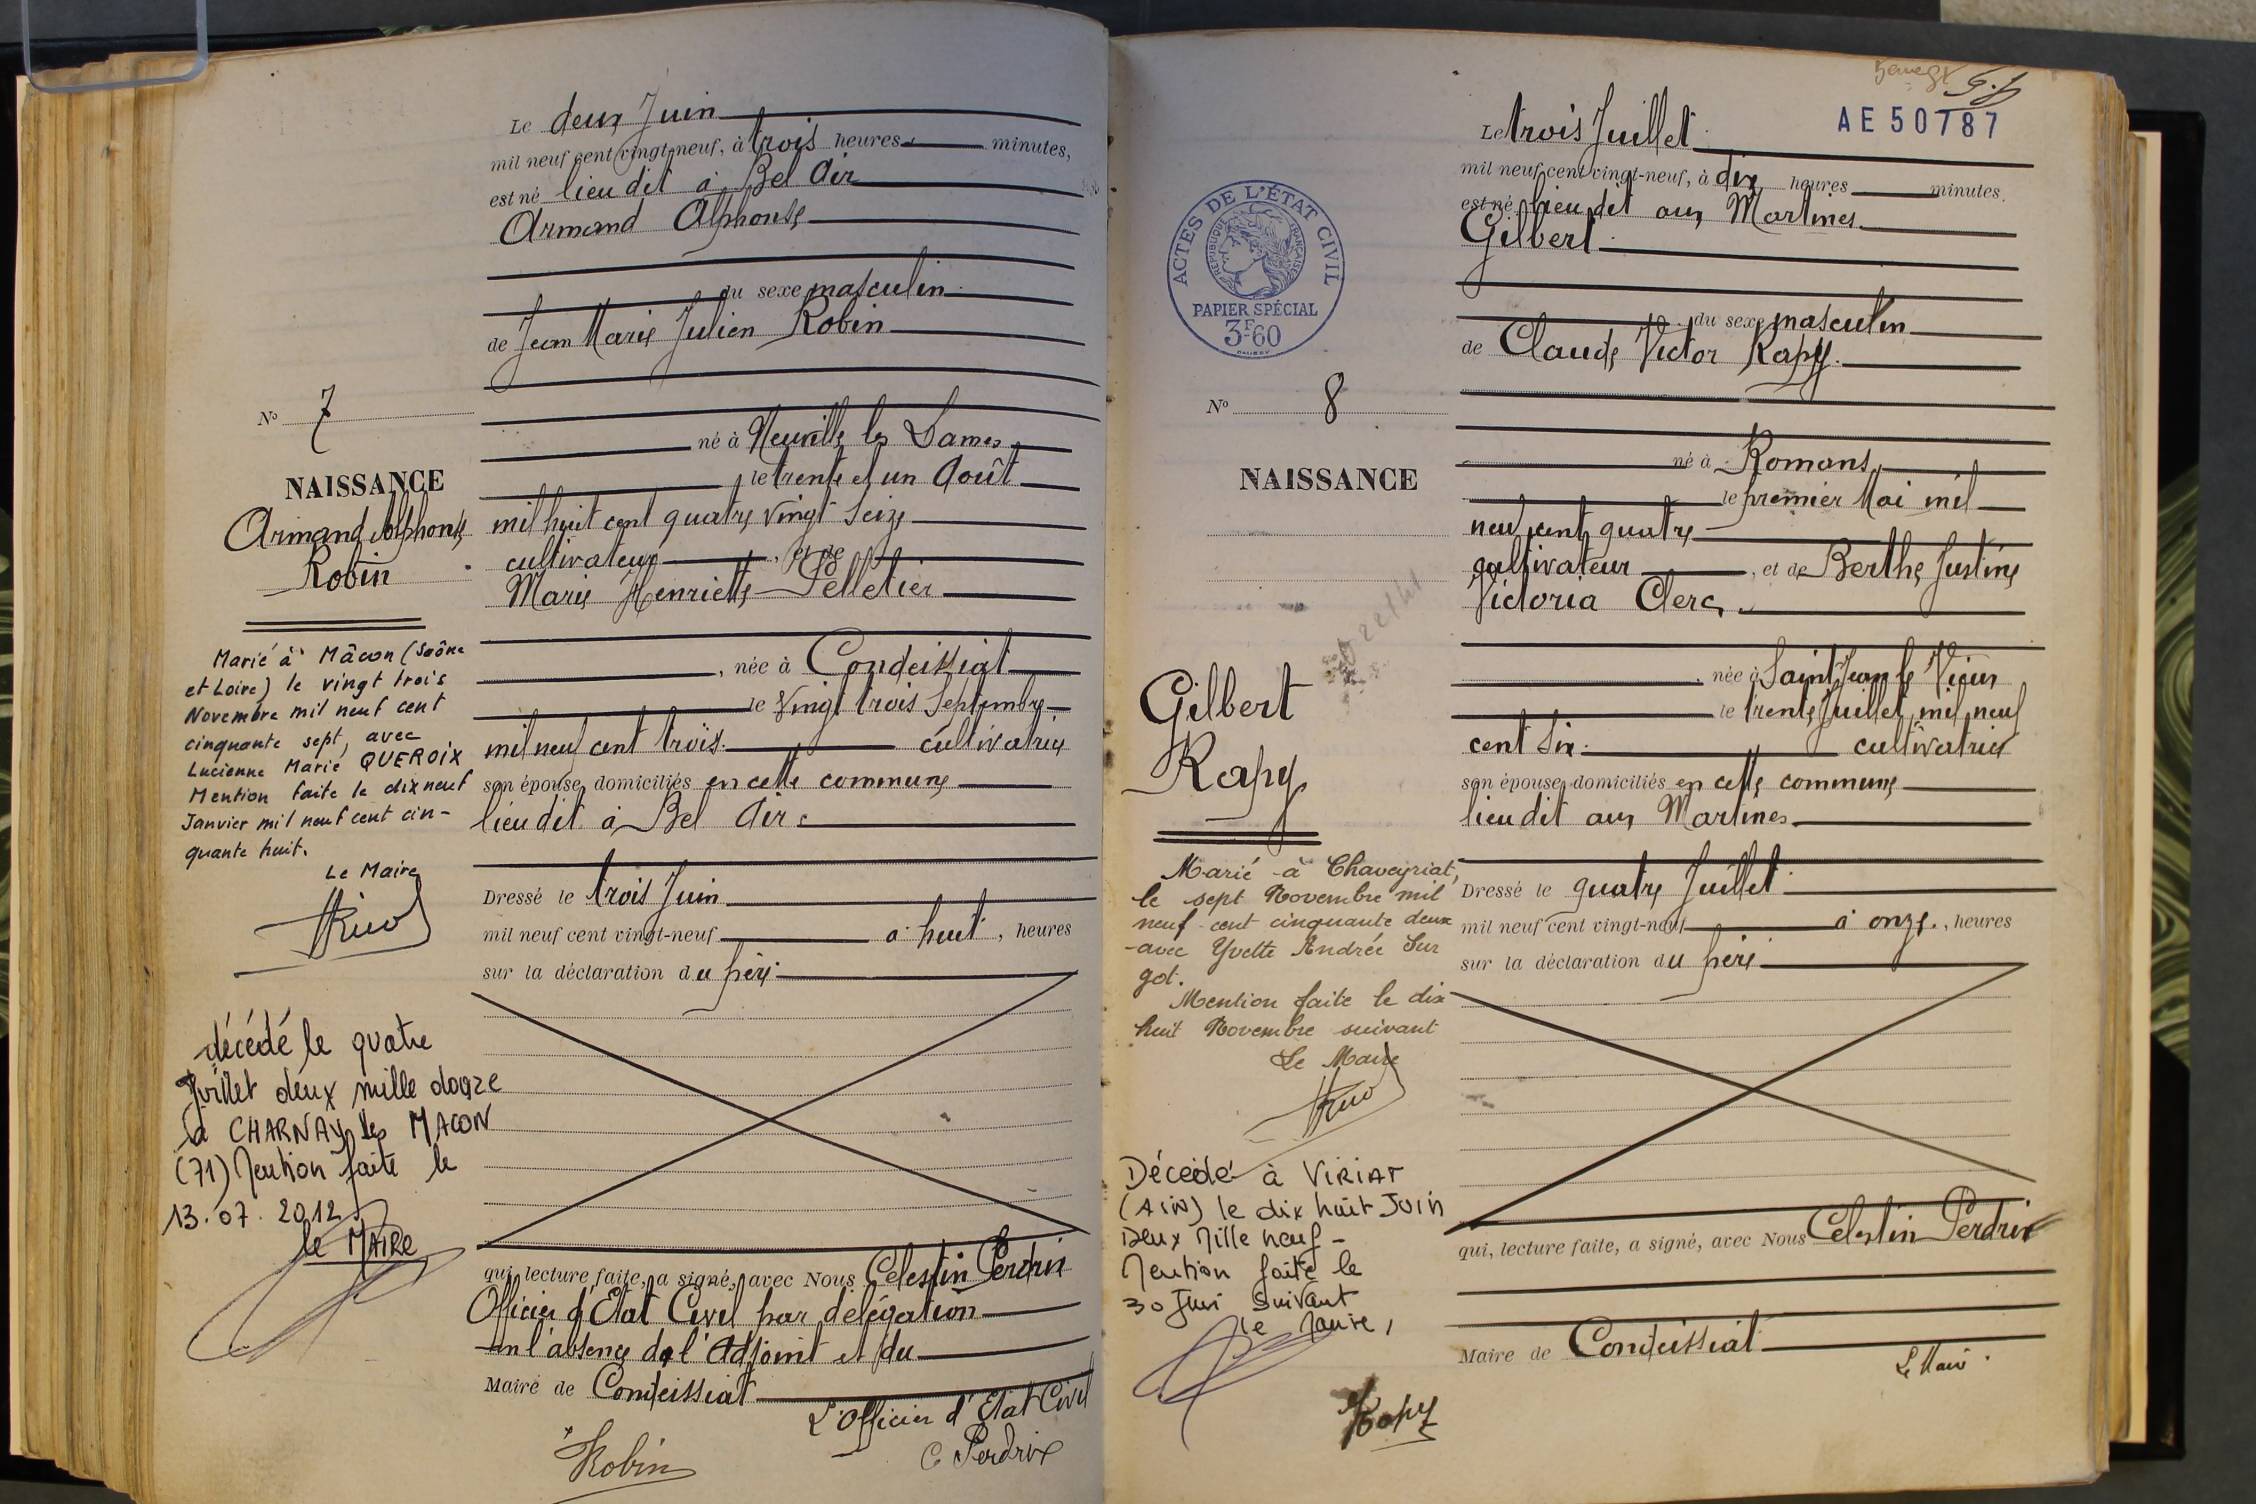 Le deux Juin
mil neuf cent vingt-neuf, à trois heures minutes,
est né lieu dit à Bel Air
Armand Alphonse
du sexe masculin
de Jean Marie Julien Robin
né à Neuville les Dames
le trente et un Août
mil huit cent quatre vingt seize
cultivateur, et de
Marie Henriette Pelletier
, née à Condeissiat
le vingt trois Septembre
mil neuf cent trois. cultivatrice
son épouse, domiciliés en cette commune
lieu dit à Bel Air
Dressé le trois Juin
mil neuf cent vingt-neuf à huit, heures
sur la déclaration du père
qui, lecture faite, a signé, avec Nous Celestin Perdrix
Officier d'Etat Civil par délégation
en l'absence de l'Adjoint et du
Maire de Condeissiat
L'Officier d'Etat Civil
Robin
C Perdrix
No 7
NAISSANCE
Armand Alphonse
Robin
Marié à Mâcon (Saône
et Loire) le vingt trois
Novembre mil neuf cent
cinquante sept, avec
Lucienne Marie QUEROIX
Mention faite le dix neuf
Janvier mil neuf cent cin-
quante huit.
Le Maire
décédé le quatre
Juillet deux mille douze
à CHARNAY les MACON
(71) Mention faite le
13.07.2012
le MAIRE
AE 50787
Le trois Juillet
mil neuf cent vingt-neuf, à dix heures minutes.
est né lieu dit aux Martines
Gilbert
du sexe masculin
de Claude Victor Rapy
né à Romans
le premier Mai mil
neuf cent quatre
cultivateur, et de Berthe Justine
Victoria Clerc
, née à Saint Jean le Vieux
le trente Juillet mil neuf
cent six. cultivatrice
son épouse, domiciliés en cette commune
lieu dit aux Martines
Dressé le quatre Juillet
mil neuf cent vingt-neuf à onze, heures
sur la déclaration du père
qui, lecture faite, a signé, avec Nous Celestin Perdrix
Maire de Condeissiat
Le Maire
Rapy
ACTES DE L'ÉTAT CIVIL
RÉPUBLIQUE FRANÇAISE
PAPIER SPÉCIAL
3F60
No 8
NAISSANCE
Gilbert
Rapy
Marié à Chaveyriat,
le sept Novembre mil
neuf cent cinquante deux
avec Yvette Andrée Sur
got.
Mention faite le dix
huit Novembre suivant
Le Maire
Décédé à VIRIAT
(AIN) le dix huit JUIN
Deux Mille neuf -
Mention faite le
30 Juin suivant
le Maire,